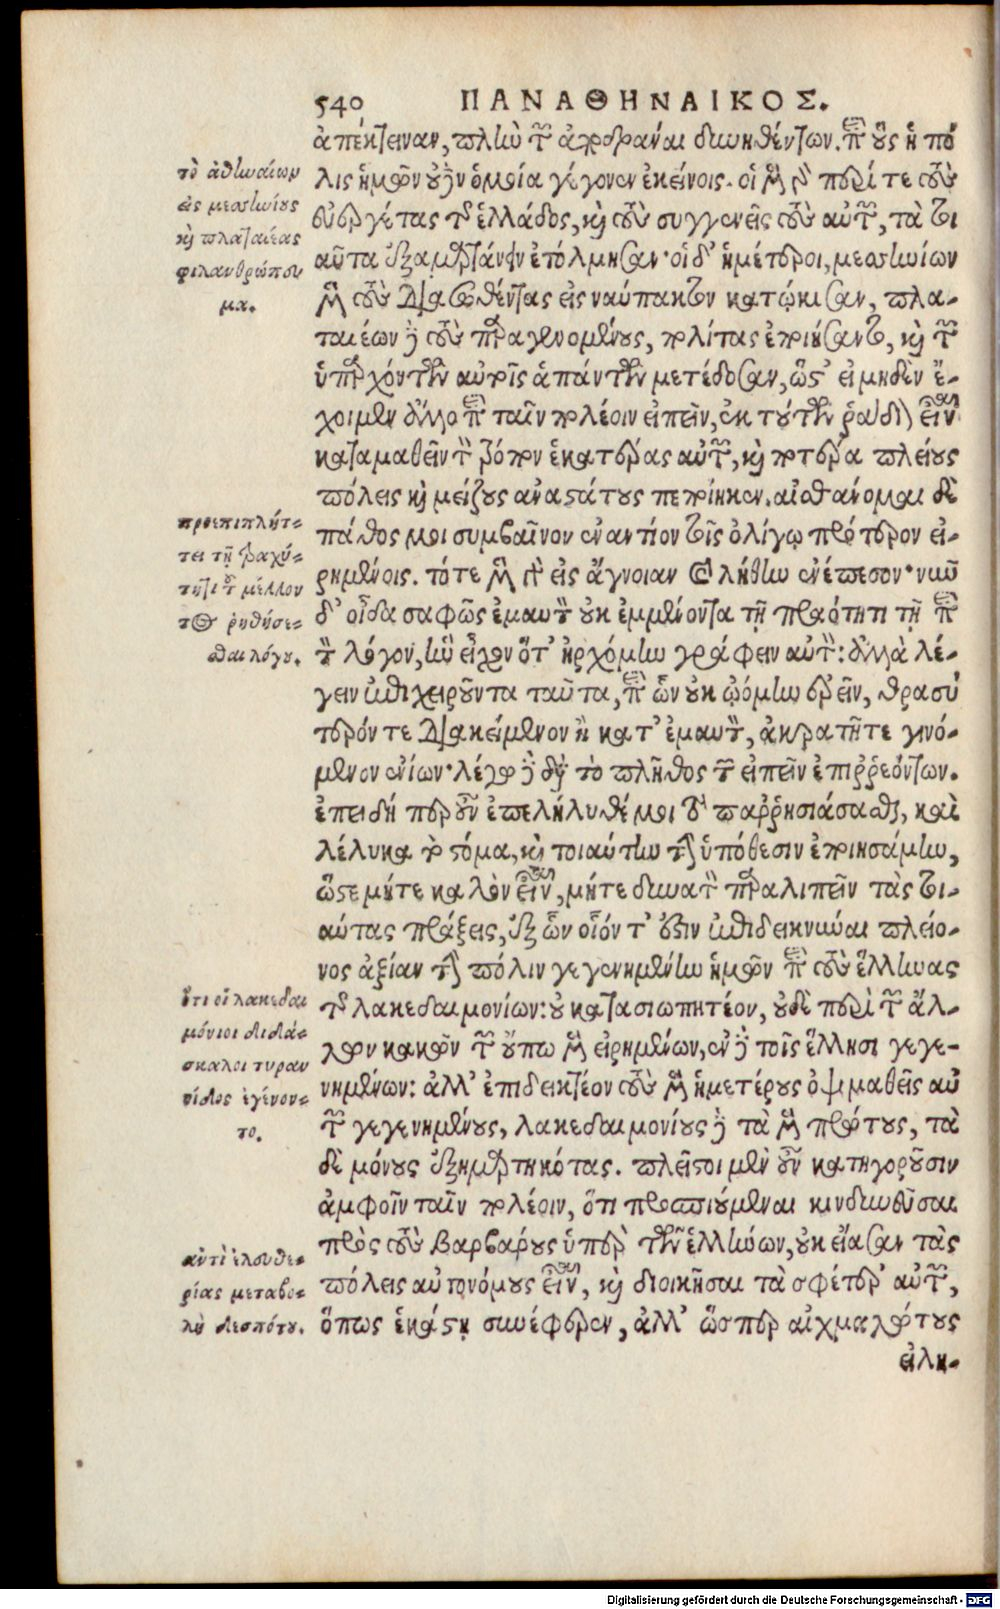 540 ΠΑΝΑΘΗΝΑΙΚΟΣ.
ἀπέκτειναν, πλὴν τῶν ἀποδρᾶναι δυνηθέντων. περὶ οὓς ἡ πό
λις ἡμῶν οὐδὲν ὁμοία γέγονεν ἐκείνοις. οἱ μὲν γὰρ περί τε τοὺς
εὐεργέτας τῆς ἑλλάδος, καὶ τοὺς συγγενεῖς τοὺς αὑτῶν, τὰ τοι
αῦτα ἐξαμαρτάνειν ἐτόλμησαν· οἱ δ' ἡμέτεροι, μεσσηνίων
μὲν τοὺς διασωθέντας εἰς ναύπακτον κατῴκισαν, πλα-
ταιέων δὲ τοὺς παραγενομένους, πολίτας ἐποιήσαντο, καὶ τῶν
ὑπαρχόντων αὑτοῖς ἁπάντων μετέδοσαν, ὥστ' εἰ μηδὲν ἔ-
χοιμεν ἄλλο περὶ ταῖν πολέοιν εἰπεῖν, ἐκ τούτων ῥάδιον εἶναι
καταμαθεῖν τὸν τρόπον ἑκατέρας αὐτῶν, καὶ ποτέρα πλείους
πόλεις καὶ μείζους ἀναστάτους πεποίηκεν. αἰσθάνομαι δὲ
πάθος μοι συμβαῖνον ἐναντίον τοῖς ὀλίγῳ πρότερον εἰ-
ρημένοις. τότε μὲν γὰρ εἰς ἄγνοιαν καὶ λήθην ἐνέπεσον· νῦν
δ' οἶδα σαφῶς ἐμαυτὸν οὐκ ἐμμένοντα τῇ πραότητι τῇ περὶ
τὸν λόγον, ἣν εἶχον ὅτ' ἠρχόμην γράφειν αὐτόν: ἀλλὰ λέ-
γειν ἐπιχειροῦντα ταῦτα, περὶ ὧν οὐκ ᾠόμην ἐρεῖν, θρασύ
τερόν τε διακείμενον ἢ κατ' ἐμαυτόν, ἀκρατῆ τε γινό-
μενον ἐνίων· λέγω δὲ διὰ τὸ πλῆθος τῶν εἰπεῖν ἐπιῤῥεόντων.
ἐπειδή περ οὖν ἐπελήλυθέ μοι τὸ παῤῥησιάσασθαι, καὶ
λέλυκα τὸ στόμα, καὶ τοιαύτην τὴν ὑπόθεσιν ἐποιησάμην,
ὥστε μήτε καλὸν εἶναι, μήτε δυνατὸν παραλιπεῖν τὰς τοι-
αύτας πράξεις, ἐξ ὧν οἷόν τ' ἐστὶν ἐπιδεικνύναι πλείο-
νος ἀξίαν τὴν πόλιν γεγενημένην ἡμῶν περὶ τοὺς ἕλληνας
τῆς λακεδαιμονίων: οὐ κατασιωπητέον, οὐδὲ περὶ τῶν ἄλ-
λων κακῶν τῶν οὔπω μὲν εἰρημένων, ἐν δὲ τοῖς ἕλλησι γεγε-
νημένων: ἀλλ' ἐπιδεικτέον τοὺς μὲν ἡμετέρους ὀψιμαθεῖς αὐ
τῶν γεγενημένους, λακεδαιμονίους δὲ τὰ μὲν πρώτους, τὰ
δὲ μόνους ἐξημαρτηκότας. πλεῖστοι μὲν οὖν κατηγοροῦσιν
ἀμφοῖν ταῖν πολέοιν, ὅτι προσποιούμεναι κινδυνεῦσαι
πρὸς τοὺς βαρβάρους ὑπὲρ τῶν ἑλλήνων, οὐκ εἴασαν τὰς
πόλεις αὐτονόμους εἶναι, καὶ διοικῆσαι τὰ σφέτερ' αὐτῶν,
ὅπως ἑκάστῃ συνέφερεν, ἀλλ' ὥσπερ αἰχμαλώτους
εἰλη-
τὸ ἀθηναίων
εἰς μεσσηνίους
καὶ πλαταιέας
φιλανθρώπευ
μα.
προεπιπλήτ-
τει τῇ τραχύ-
τητι τοῦ μέλλον
τος ῥηθήσε-
σθαι λόγου.
ὅτι οἱ λακεδαι
μόνιοι διδά-
σκαλοι τυραν
νίδος ἐγένον-
το.
ἀντὶ ἐλευθε-
ρίας μεταβο-
λὴ δεσπότου.
Digitalisierung gefördert durch die Deutsche Forschungsgemeinschaft - DFG